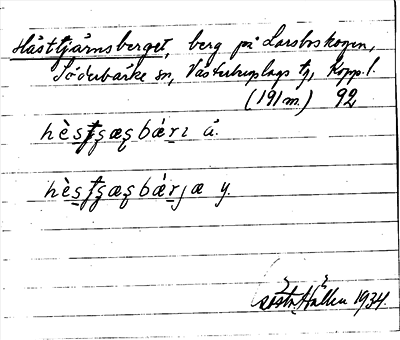 Hästtjärnsberget, berg på Larsboskogen,
Söderbärke sn, Västerbergslags tg, Kopp. l.
(191 m.) 92
hèsƫʒæʒbǽrɪ ä.
hèsƫʒæʒbǽrjæ y.
Gösta Hallén 1934.